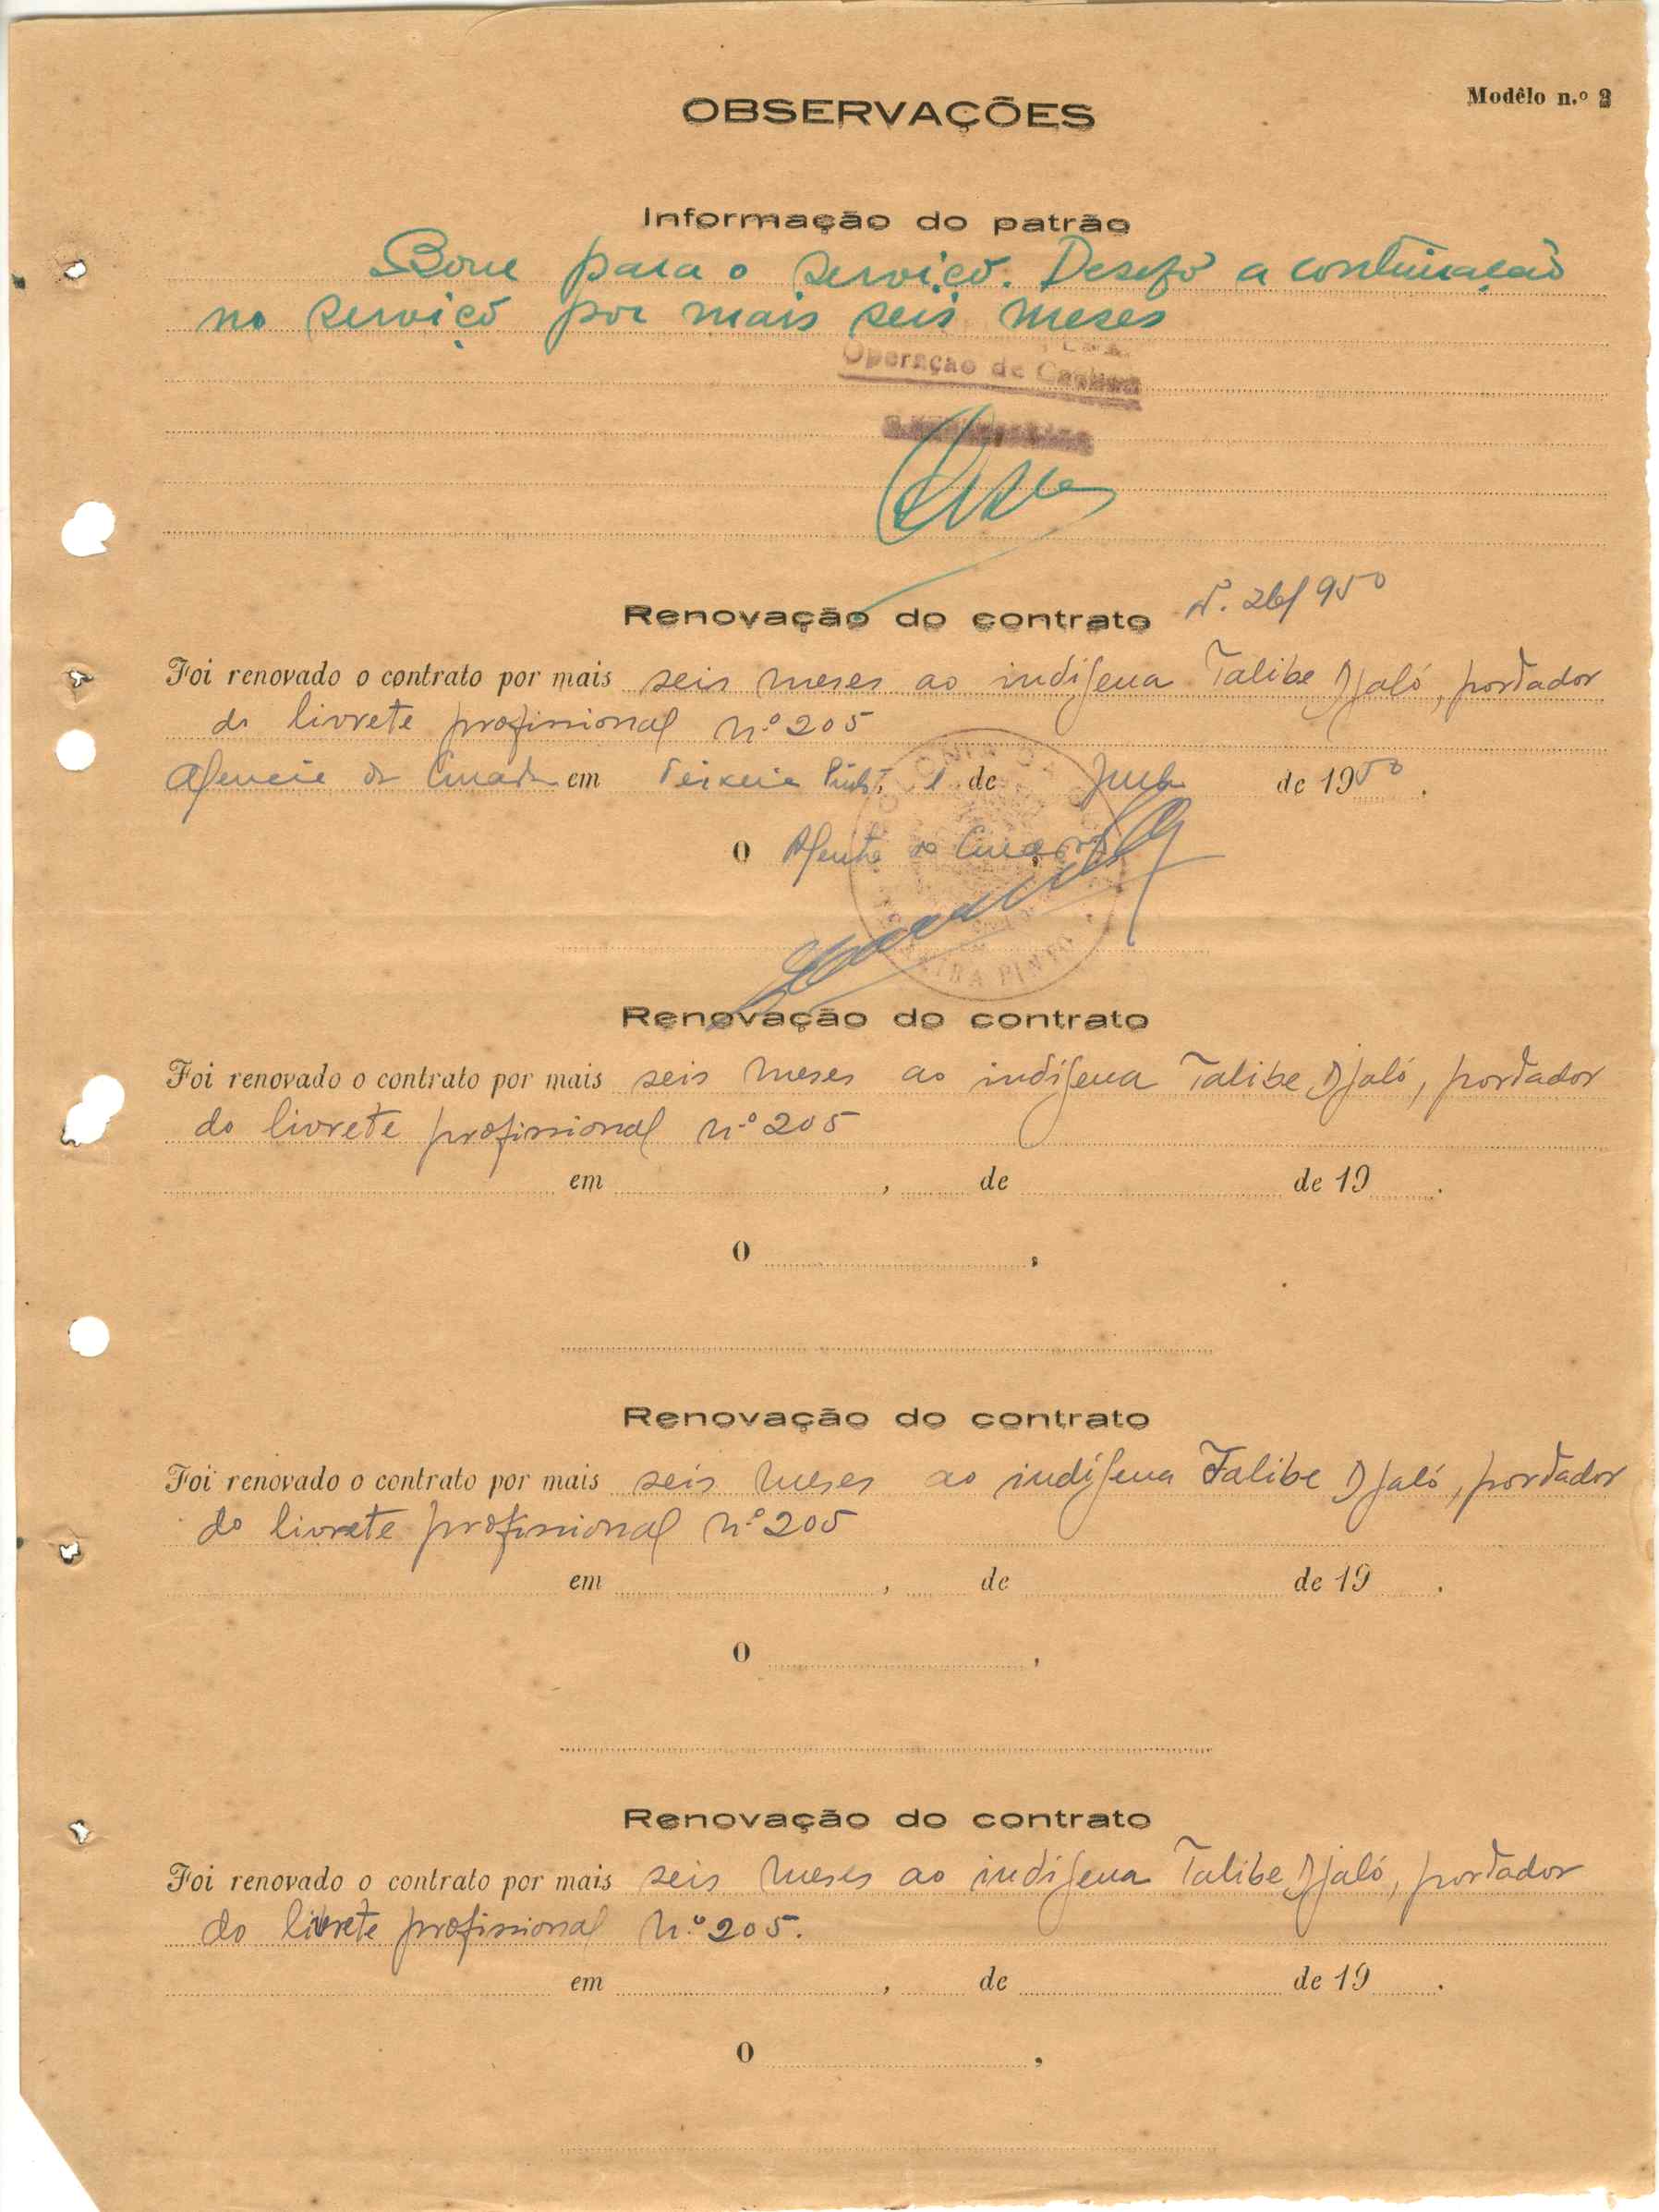 OBSERVAÇÕES
Modêlo n.º 2
Informação do patrão
Bom para o serviço. Desejo a continuação
no serviço por mais seis meses
Operação de
Renovação do contrato N.º 26/950
Foi renovado o contrato por mais seis meses ao indígena Talibe Djaló, portador
do livrete profissional nº 205
em Teixeira Pinto, 1 de de 1950.
O Agente
COLONIA DA
TEIXEIRA PINTO
Renovação do contrato
Foi renovado o contrato por mais seis meses ao indígena Talibe Djaló, portador
do livrete profissional nº 205
em , de de 19 .
O ,
Renovação do contrato
Foi renovado o contrato por mais seis meses ao indígena Talibe Djaló, portador
do livrete profissional nº 205
em , de de 19 .
O ,
Renovação do contrato
Foi renovado o contrato por mais seis meses ao indígena Talibe Djaló, portador
do livrete profissional nº 205.
em , de de 19 .
O ,